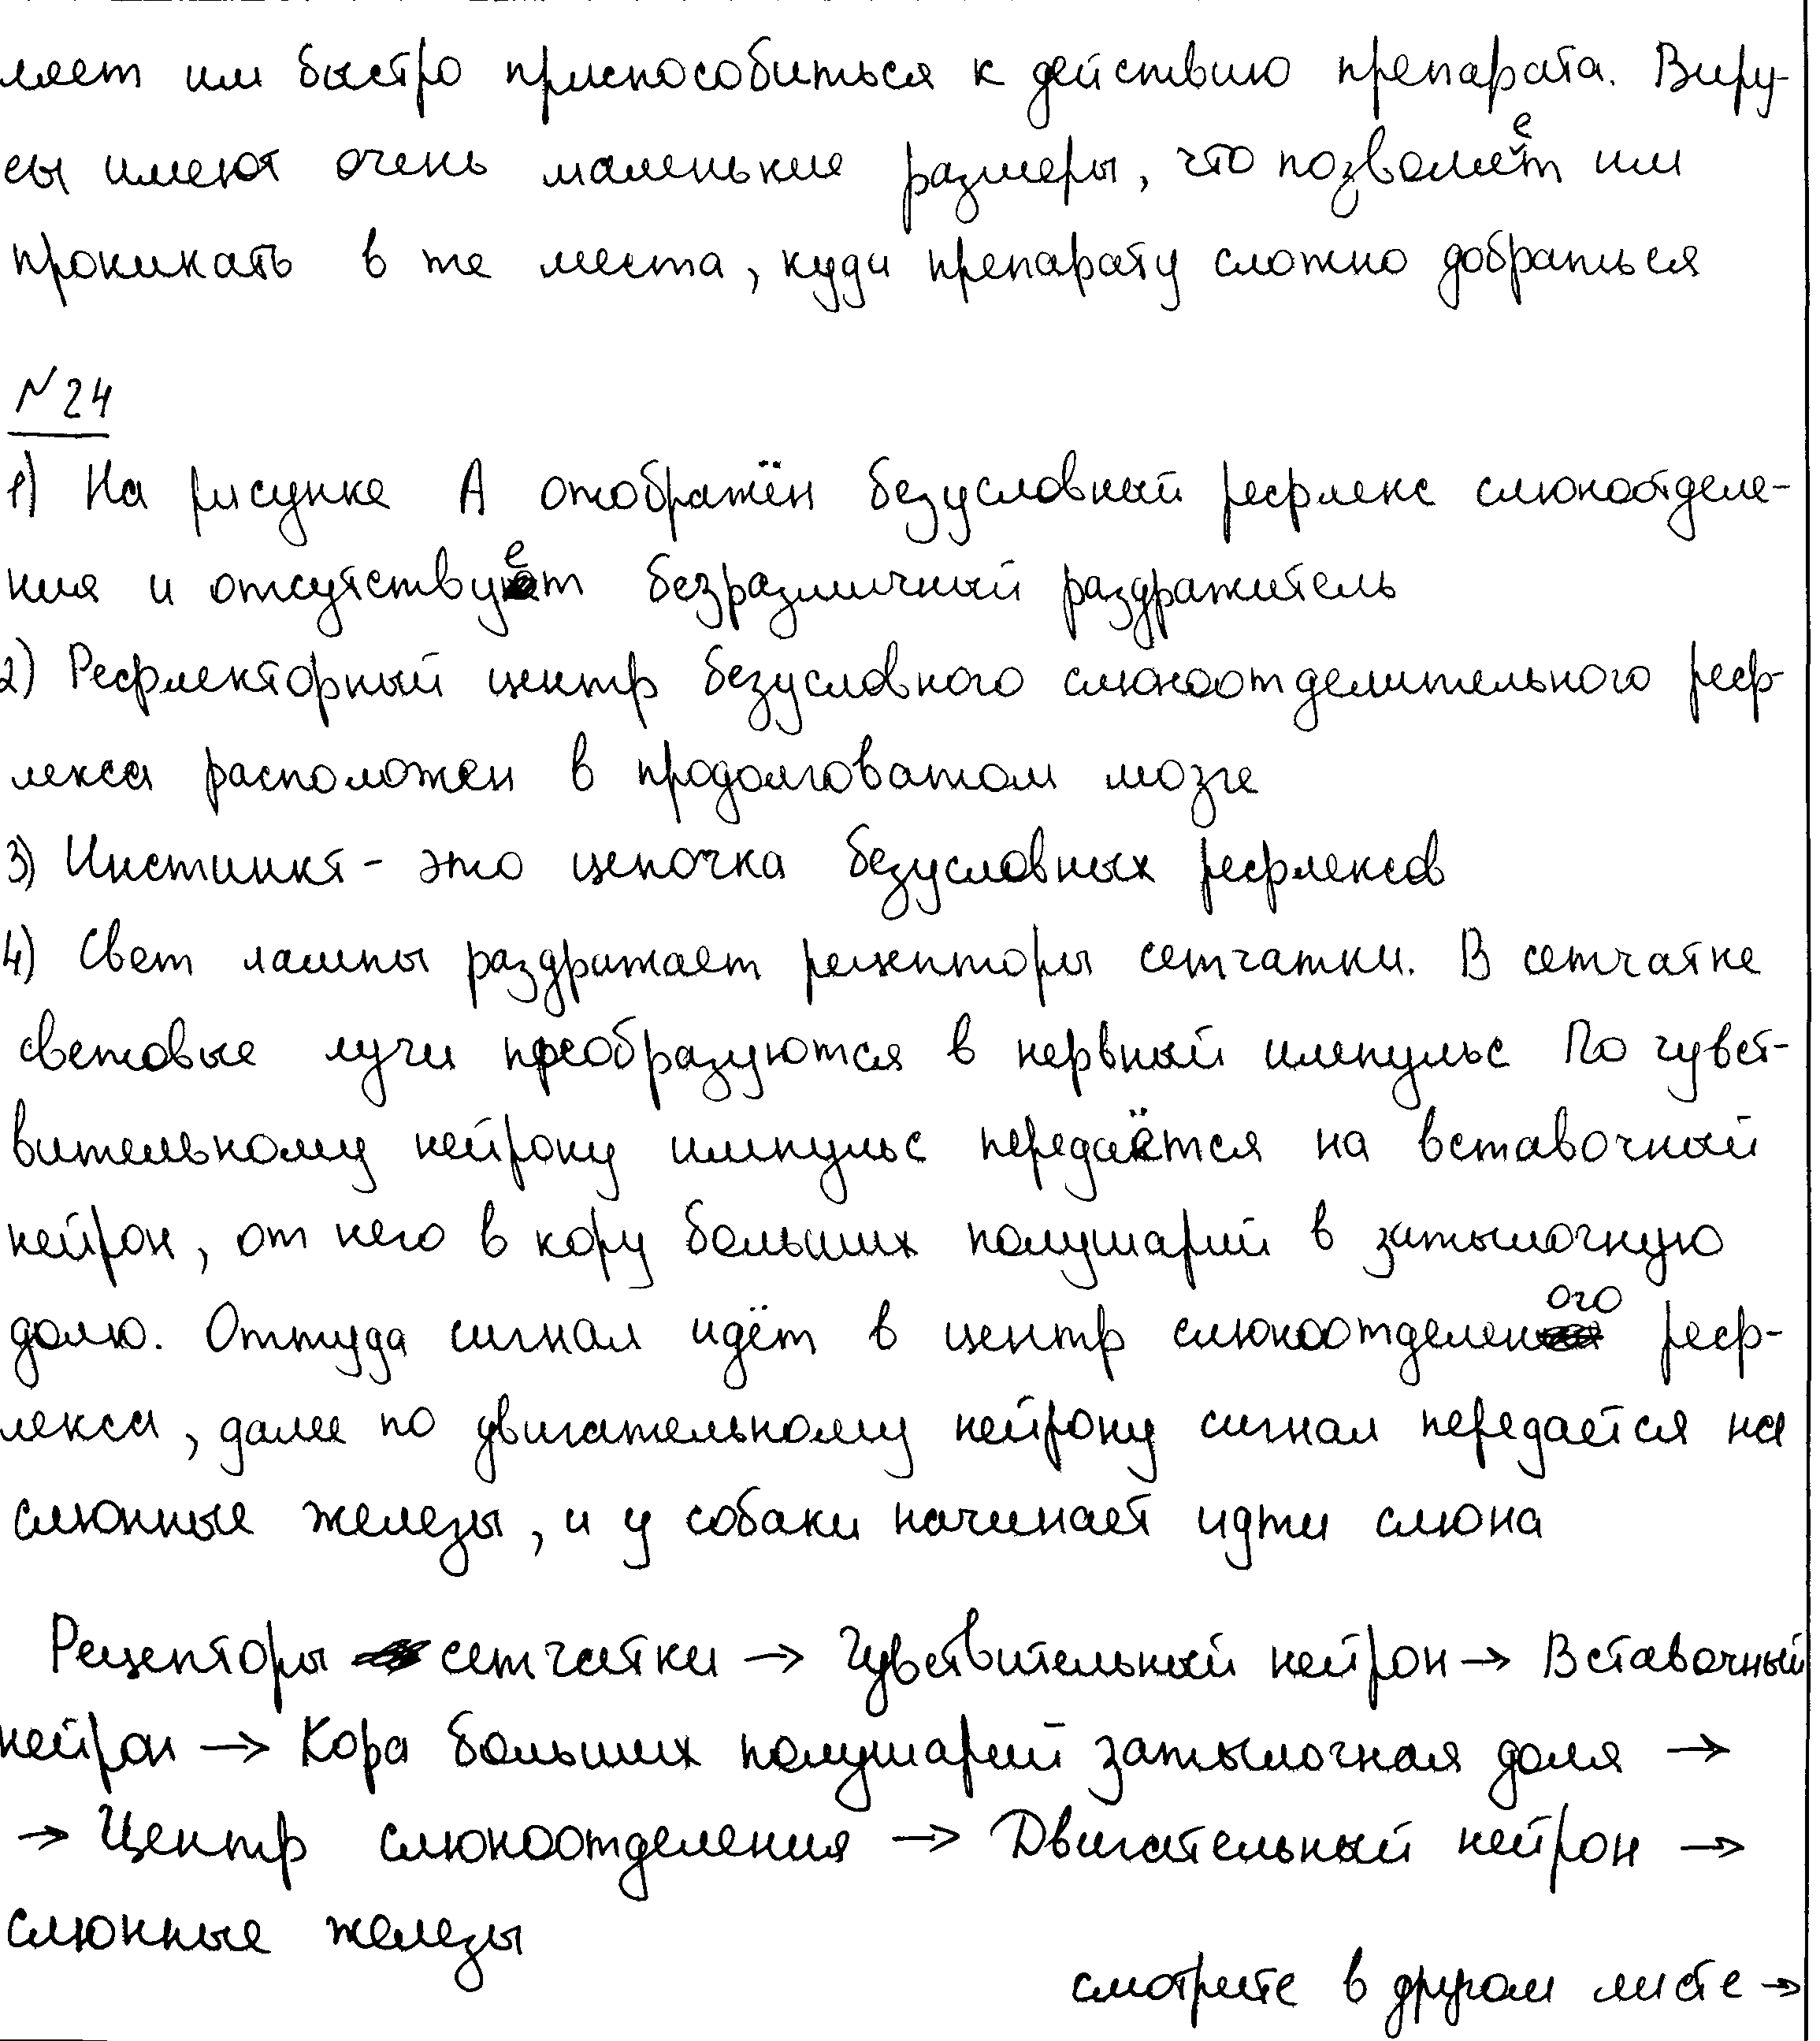 ляет им быстро приспособиться к действию препарата. Виру-
сы имеют очень маленькие размеры, что позволяет им
проникать в те места, куда препарату сложно добраться
№24
1) На рисунке А отображён безусловный рефлекс слюноотделе-
ния и отсутствует безразличный раздражитель
2) Рефлекторный центр безусловного слюноотделительного реф-
лекса расположен в продолговатом мозге
3) Инстинкт - это цепочка безусловных рефлексов
4) Свет лампы раздражает рецепторы сетчатки. В сетчатке
световые лучи преобразуются в нервный импульс По чувст-
вительному нейрону импульс передаётся на вставочный
нейрон, от него в кору больших полушарий в затылочную
долю. Оттуда сигнал идёт в центр слюноотделеного реф-
лекса, далее по двигательному нейрону сигнал передается на
слюнные железы, и у собаки начинает идти слюна
Рецепторы сетчатки → Чувствительный нейрон → Вставочный
нейрон → Кора больших полушарий затылочная доля →
→ Центр слюноотделения → Двигательный нейрон →
слюнные железы
смотрите в другом листе →